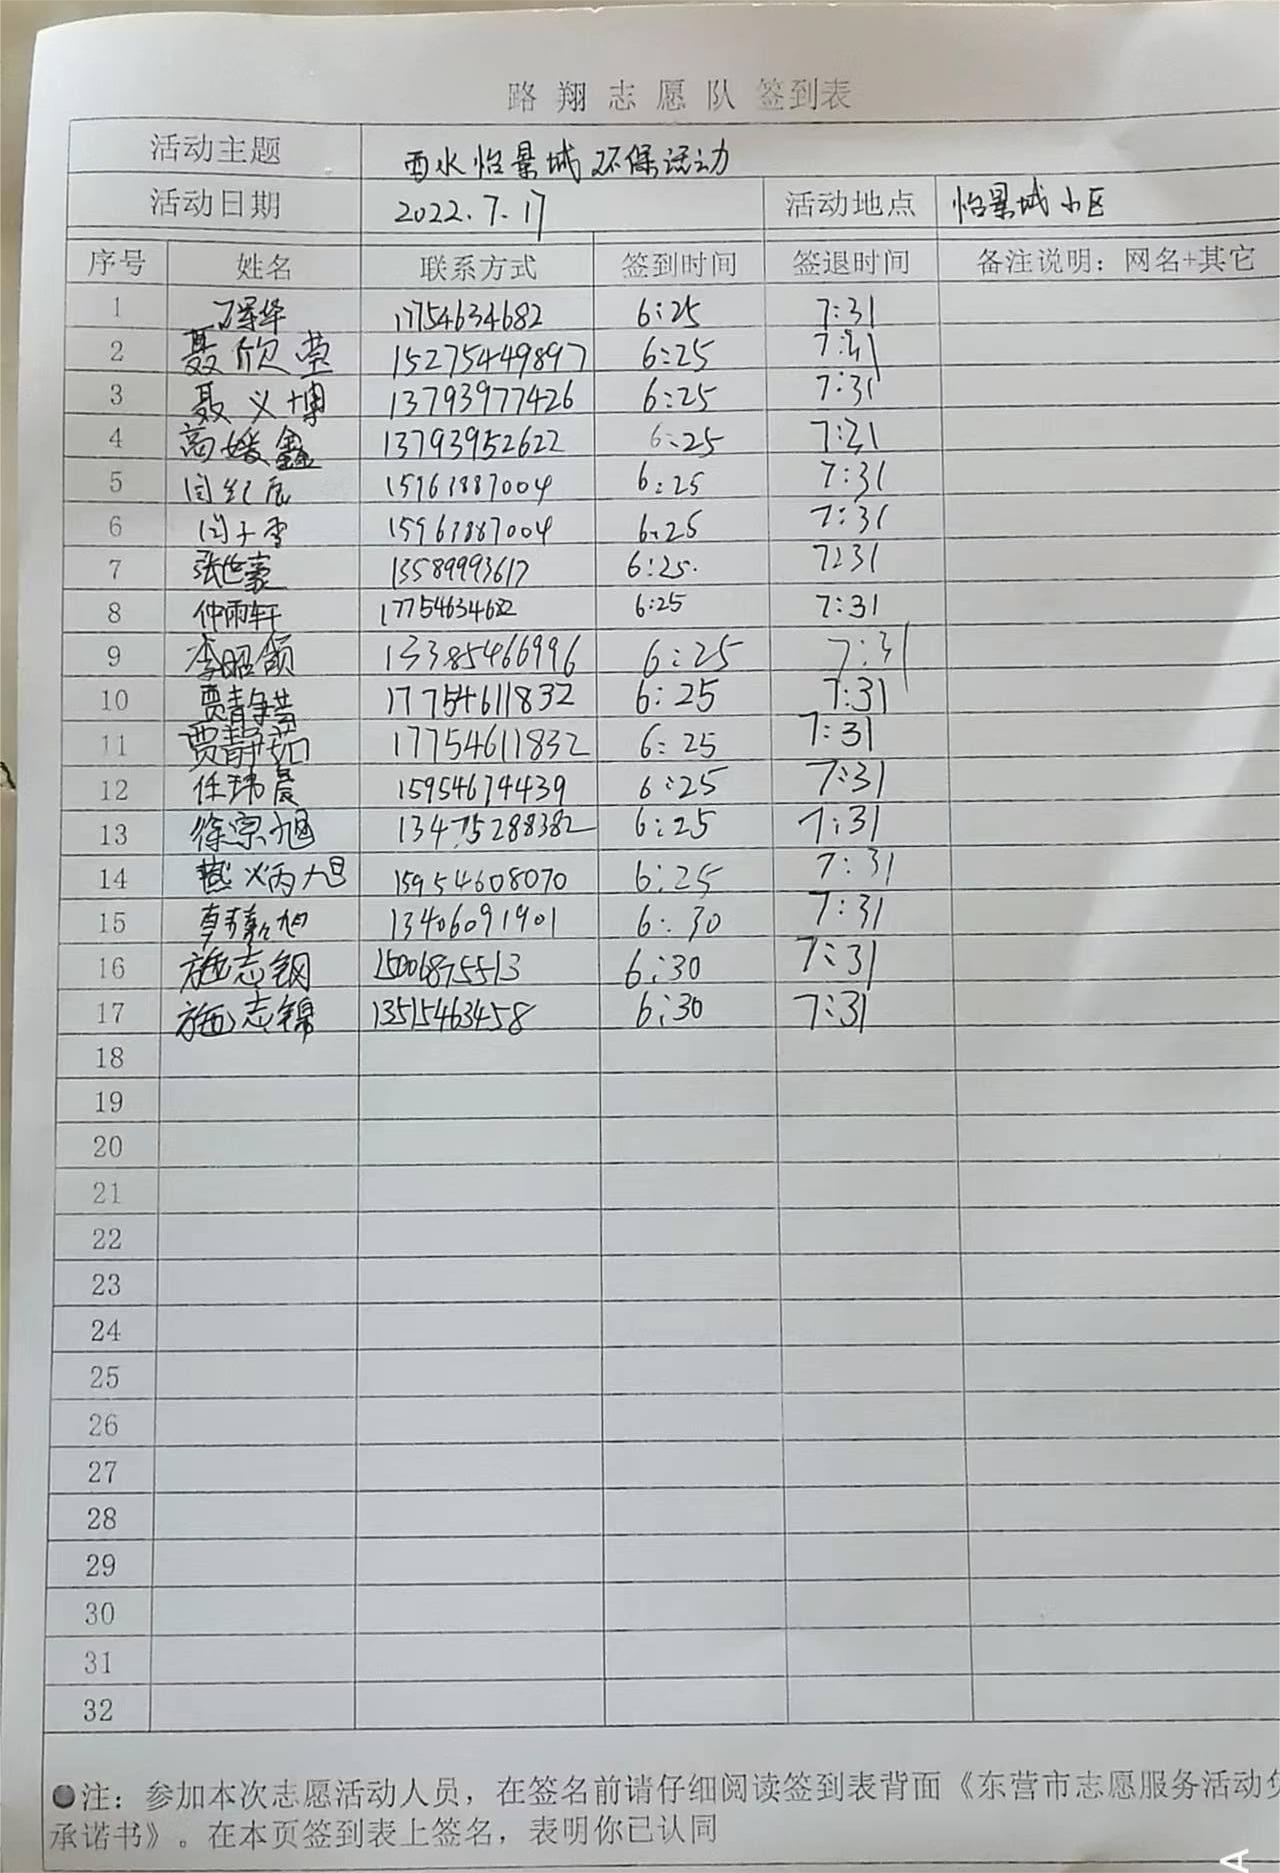 路翔志愿队签到表
活动主题 西水怡景城环保活动
活动日期 2022.7.17 活动地点 怡景城小区
序号 姓名 联系方式 签到时间 签退时间 备注说明：网名+其它
1 17754634682 6:25 7:31
2 聂欣莹 15275449897 6:25 7:31
3 聂义博 13793977426 6:25 7:31
4 高媛鑫 13793952622 6:25 7:31
5 6:25 7:31
6 6:25 7:31
7 张世豪 13589993617 6:25. 7:31
8 仲雨轩 6:25 7:31
9 李昭颌 13385466996 6:25 7:31
10 17754611832 6:25 7:31
11 贾静茹 17754611832 6:25 7:31
12 任玮晨 15954674439 6:25 7:31
13 徐宗旭 13475288382 6:25 7:31
14 15954608070 6:25 7:31
15 13406091901 6:30 7:31
16 施志钢 15006875513 6:30 7:31
17 施志锦 13515463458 6:30 7:31
18
19
20
21
22
23
24
25
26
27
28
29
30
31
32
●注：参加本次志愿活动人员，在签名前请仔细阅读签到表背面《东营市志愿服务活动
承诺书》。在本页签到表上签名，表明你已认同
A